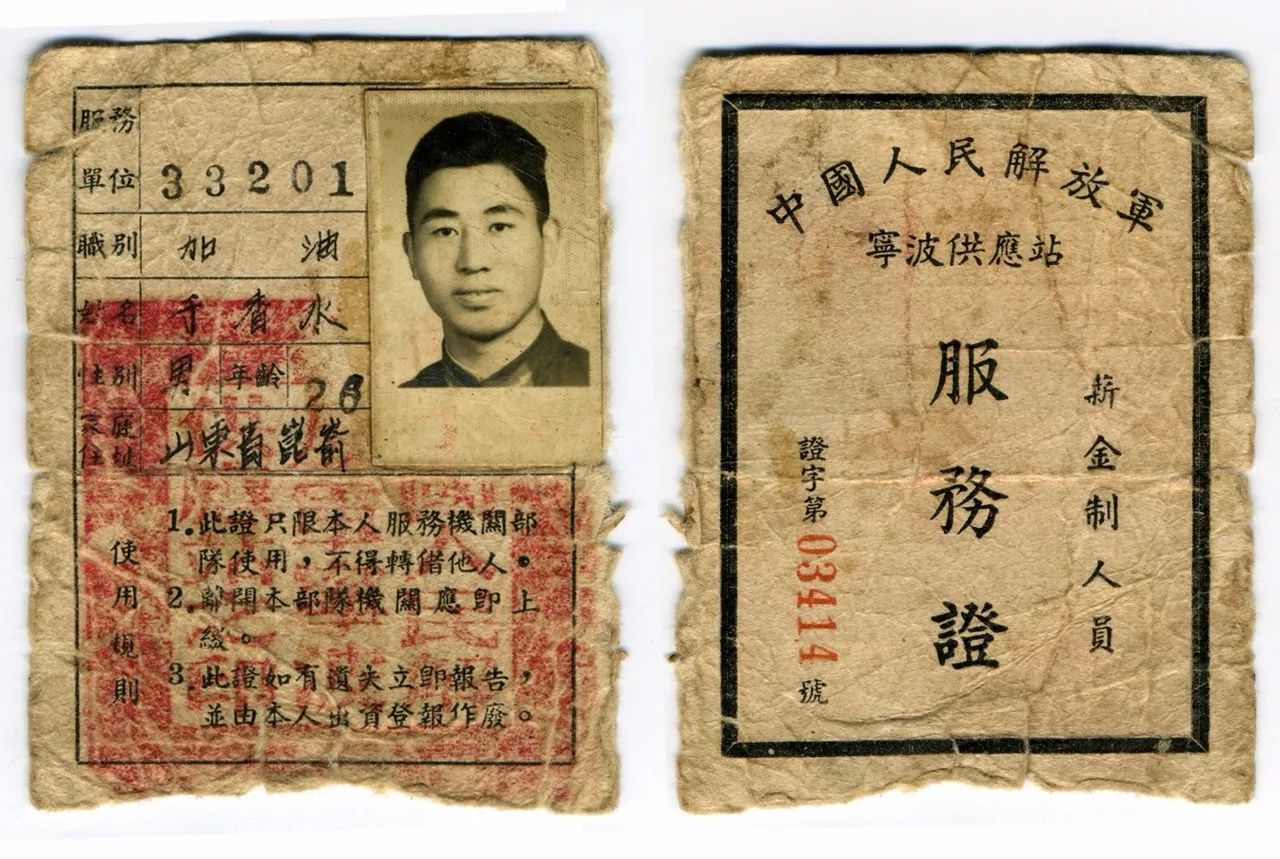 服務單位 33201
職別 加油
姓名 于香水
性別 男 年齡 26
家庭住址 山東省崑嵛
使用規則
1. 此證只限本人服務機關部
隊使用，不得轉借他人。
2. 離開本部隊機關應即上
繳。
3. 此證如有遺失立即報告，
並由本人出資登報作廢。
中國人民解放軍
寧波供應站
薪金制人員
服務證
證字第03414號